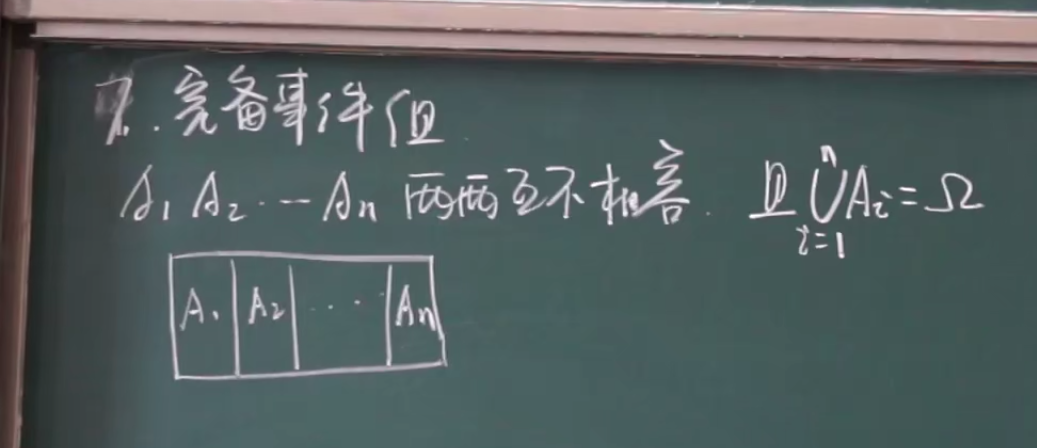 7.完备事件组.
A₁ A₂ ⋯ Aₙ 两两互不相容. 且 ⋃ᵢ₌₁ⁿ Aᵢ = Ω
A₁ A₂ ⋯ Aₙ